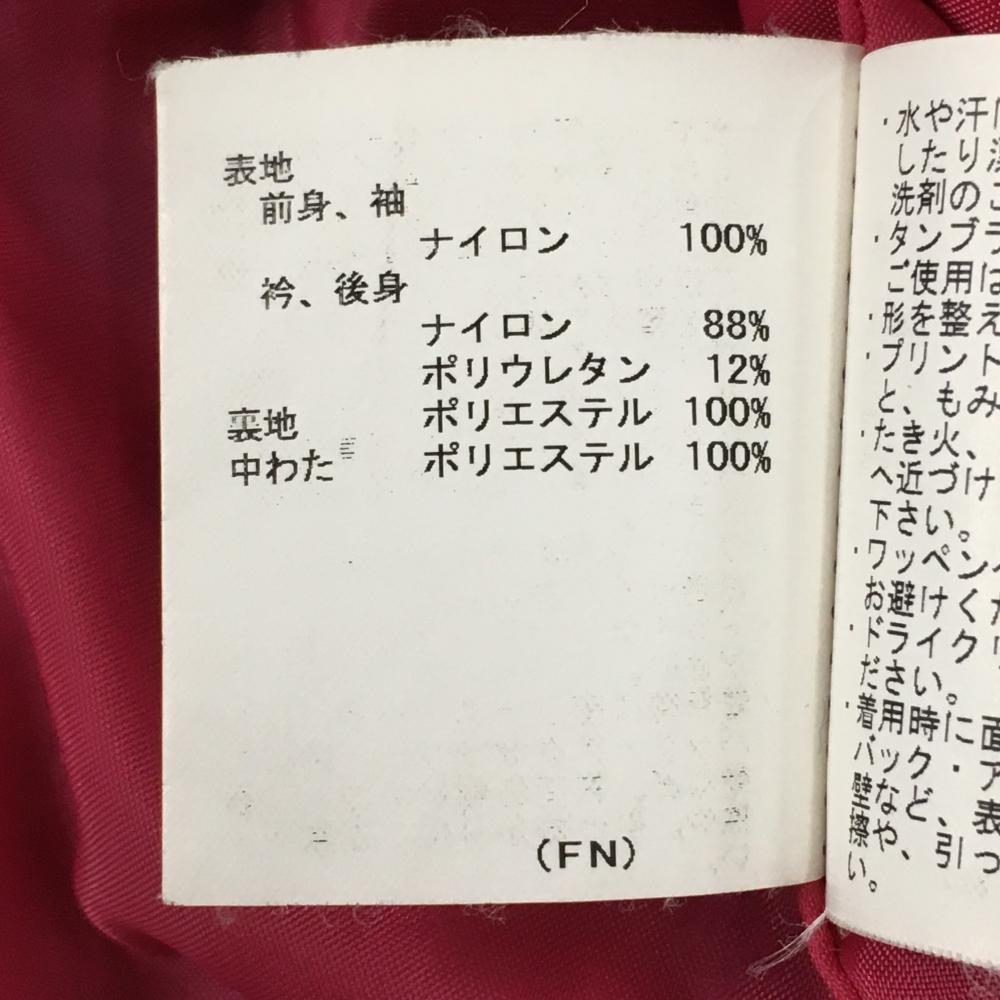 表地
前身、袖
ナイロン 100%
衿、後身
ナイロン 88%
ポリウレタン 12%
裏地 ポリエステル 100%
中わた ポリエステル 100%
(FN)
・水や汗
したり
洗剤の
・タンブラ
ご使用は
・形を整え
・プリント
と、もみ
・たき火、
へ近づけ
下さい。
・ワッペン
お避けくだ
・ドライク
ださい。
・着用時に面
バック・ア
壁など、表
擦や、引っ
い。